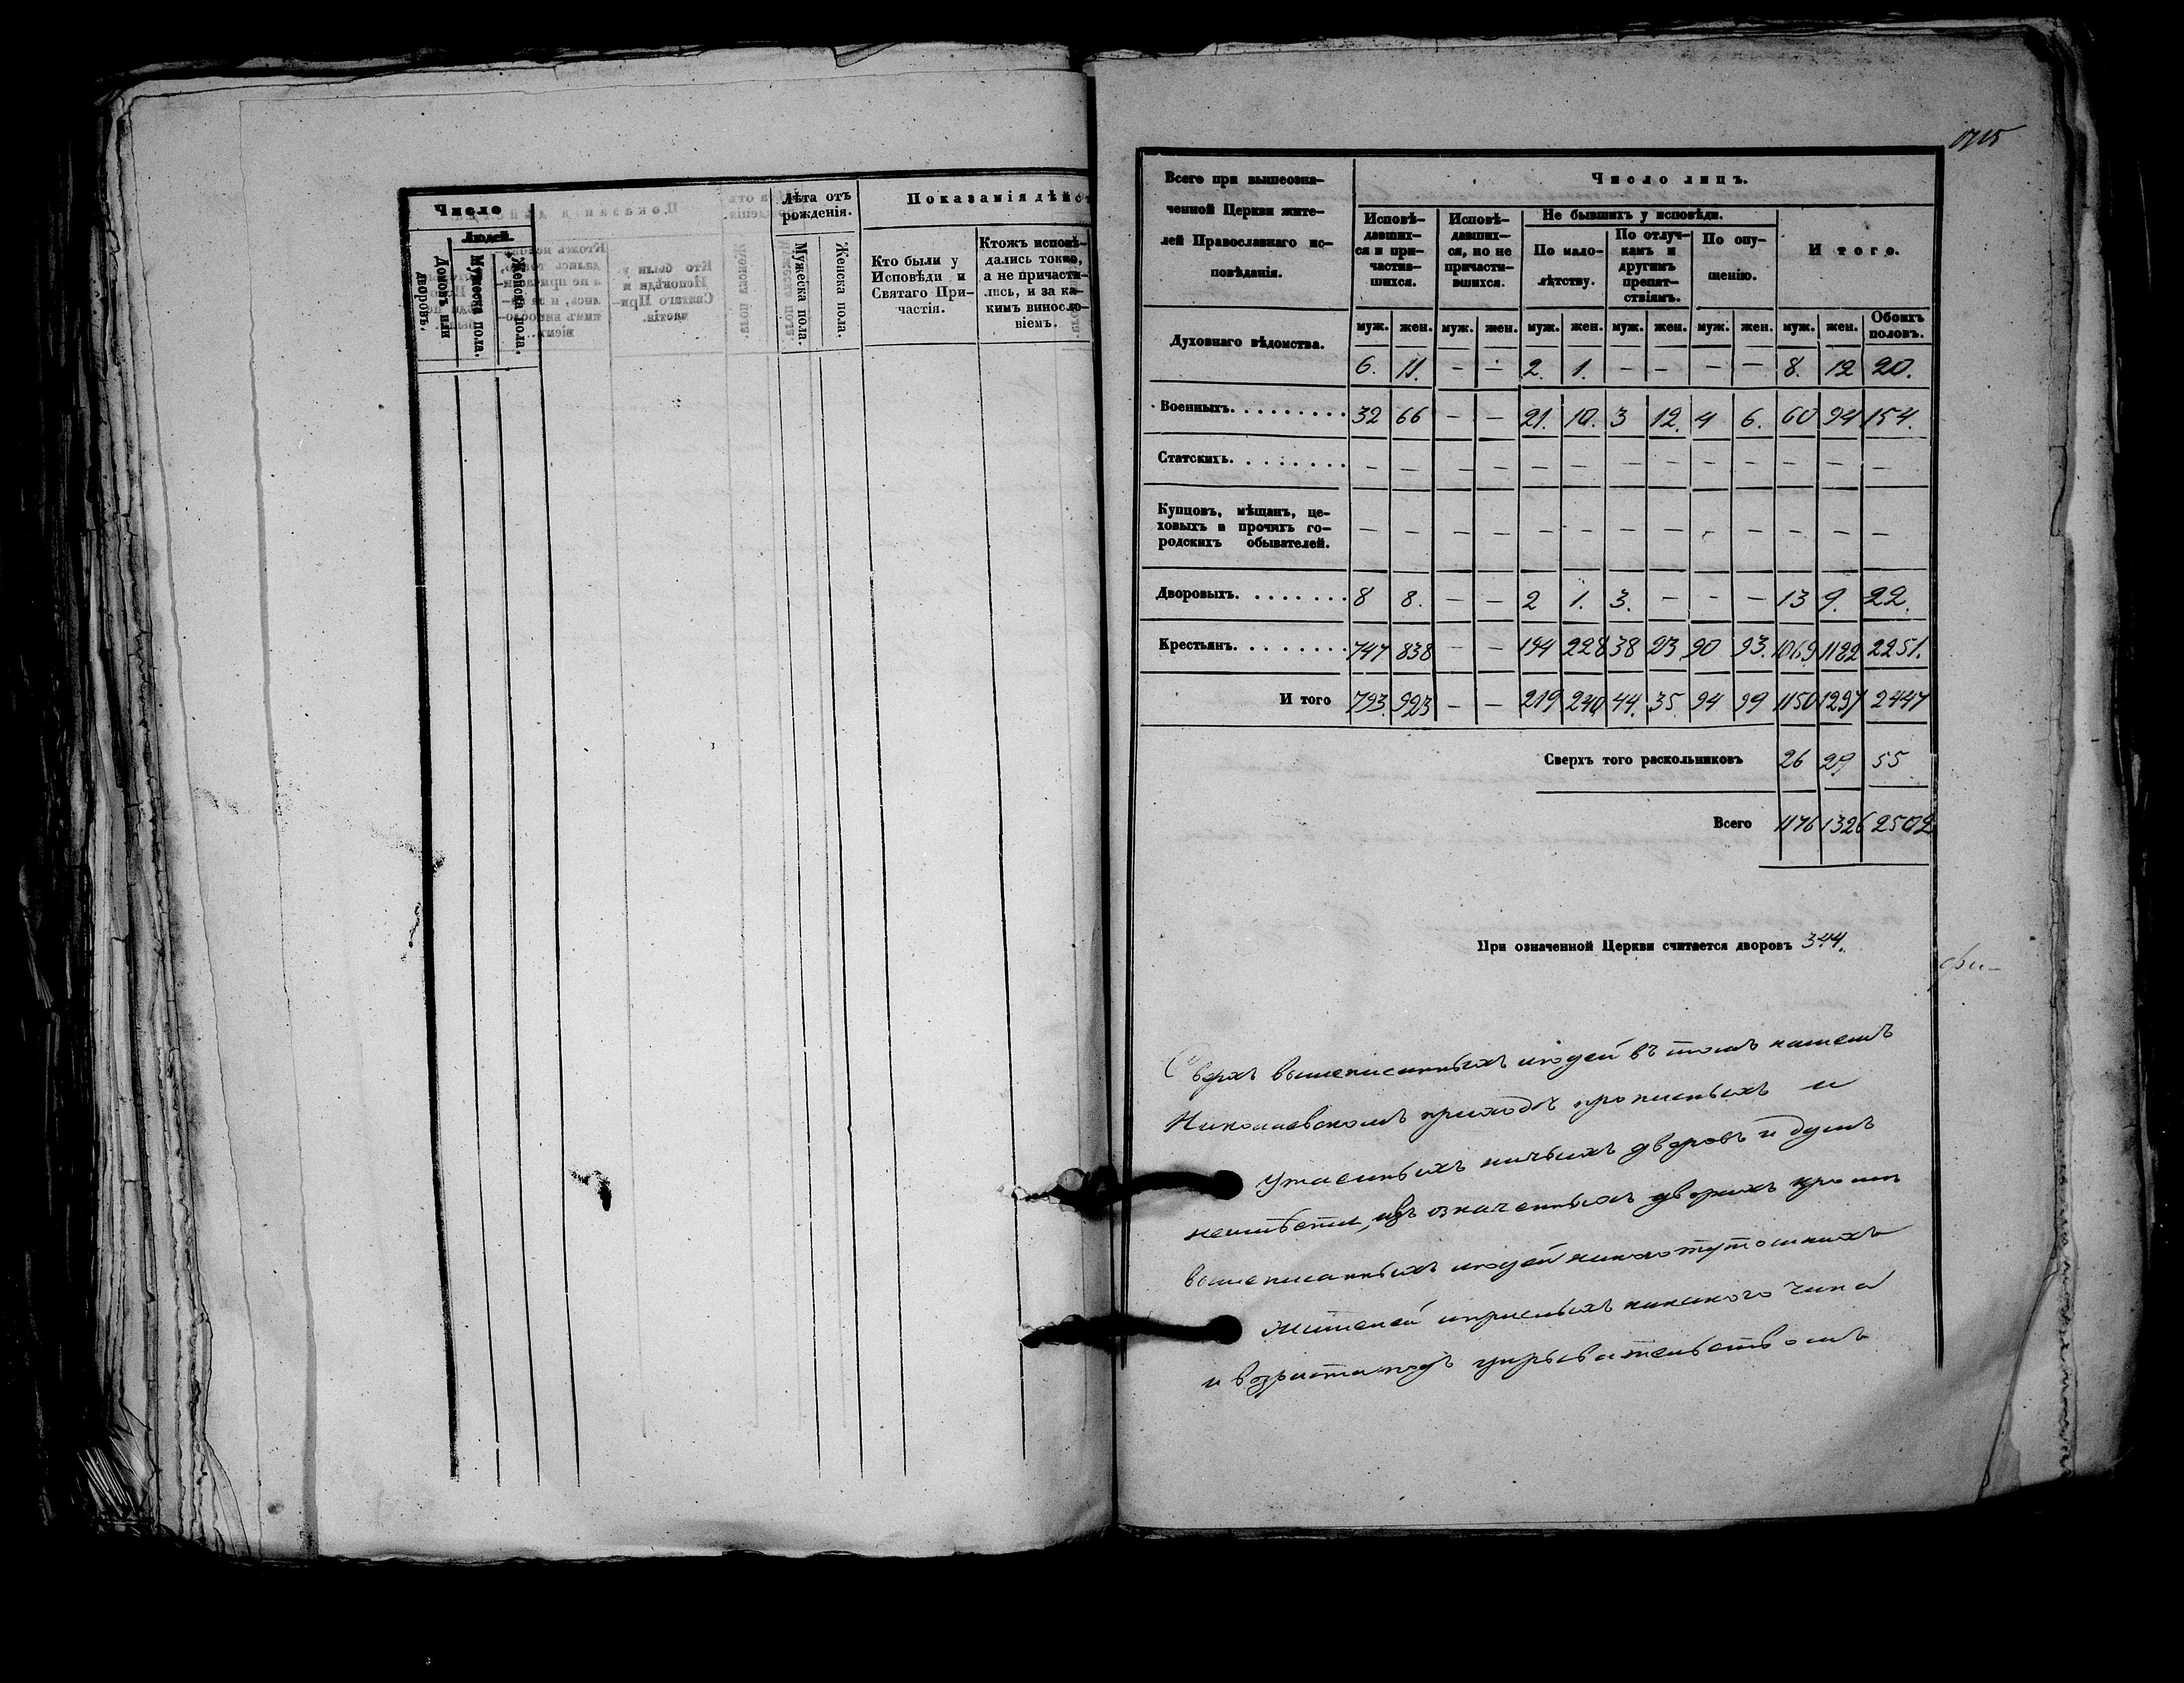 Число
Людей
Домовъ или дворовъ.
Мужеска пола.
Женска пола.
Лѣта отъ рожденія.
Мужеска пола.
Женска пола.
Показанія дѣйст
Кто были у
Исповѣди и
Святаго При-
частія.
Ктожъ исповѣ-
дались токмо,
а не причасти-
лись, и за ка-
кимъ винословіемъ.
Всего при вышеозна-
ченной Церкви жите-
лей Православнаго ис-
повѣданія.
Число лицъ.
Исповѣ-
давших-
ся и при-
частив-
шихся.
Исповѣ-
давших-
ся, но не
причасти-
вшихся.
Не бывшихъ у исповѣди.
По мало-
лѣтству.
По отлуч-
камъ и
другимъ
препят-
ствіямъ.
По опу-
щенію.
Итого.
муж. жен. муж. жен. муж. жен. муж. жен. муж. жен. муж. жен. Обоихъ половъ.
Духовнаго вѣдомства. 6. 11. – – 2. 1. – – – – 8. 12 20.
Военныхъ. . . . . . . . . 32 66 – – 21. 10. 3 12. 4 6. 60 94 154.
Статскихъ. . . . . . . . – – – – – – – – – – – – –
Купцовъ, мѣщанъ, це-
ховыхъ и прочихъ го-
родскихъ обывателей. – – – – – – – – – – – – –
Дворовыхъ. . . . . . . . 8 8. – – 2 1. 3. – – – 13 9. 22.
Крестьянъ. . . . . . . . 747 838 – – 194 228 38 23 90 93. 1069 1182 2251.
И того 793. 923 – – 219 240 44. 35. 94 99 1150 1297 2447
Сверхъ того раскольниковъ 26 29 55
Всего 1176 1326 2502
При означенной Церкви считается дворовъ 344.
Сверхъ вышеписанныхъ людей въ томъ нашемъ
Николаевскомъ приходѣ прописныхъ и
утаенныхъ ничьихъ дворовъ и душъ
неимѣется, въ означенныхъ дворахъ кромѣ
вышеписанныхъ людей никого тутошнихъ
жителей и приелыхъ никакого чина
и возраста подъ укрывательствомъ